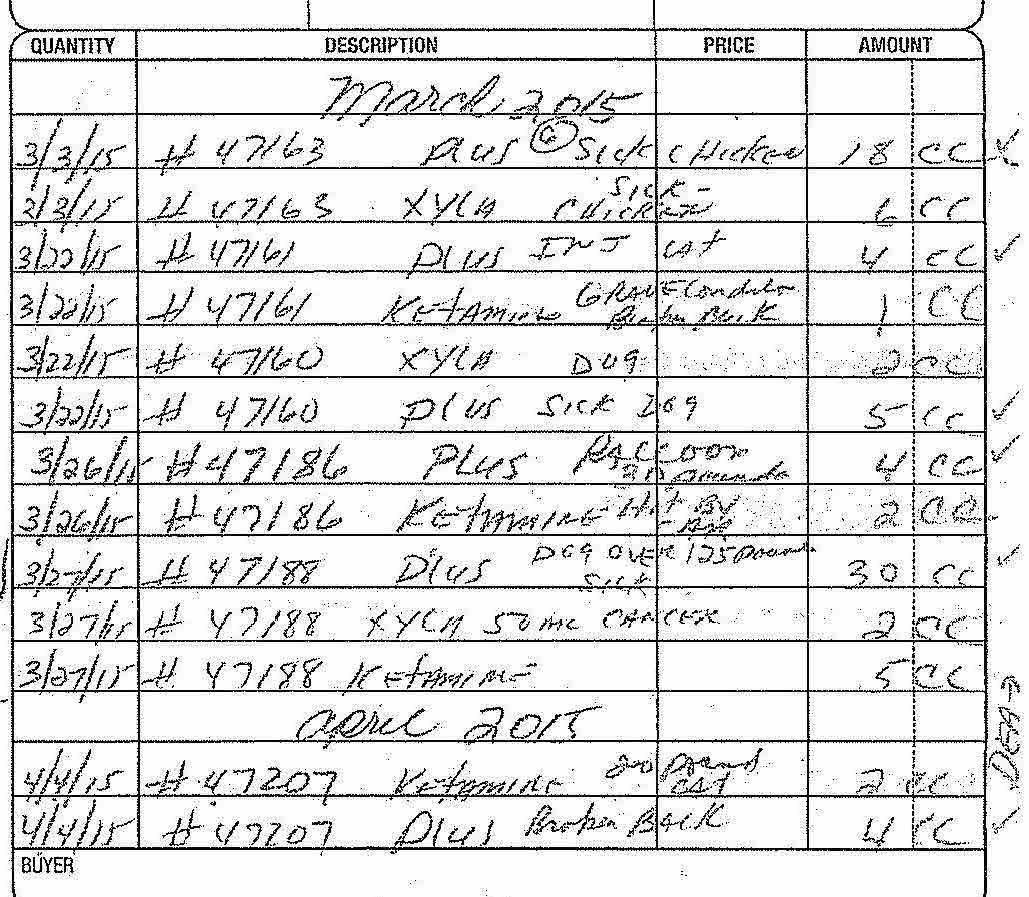 QUANTITY DESCRIPTION PRICE AMOUNT
March 2015
3/3/15 # 47163 Plus ⑥ SICK CHICKEN 18 CC ✓
3/3/15 # 47163 XYLA SICK - CHICKEN 6 CC
3/22/15 # 47161 Plus INJ CAT 4 CC ✓
3/22/15 # 47161 KETAMINE GRAVE Condition Broken Back 1 CC
3/22/15 # 47160 XYLA DOG 2 CC
3/22/15 # 47160 Plus SICK DOG 5 CC ✓
3/26/15 # 47186 Plus RACCOON pounds 4 CC ✓
3/26/15 # 47186 KETAMINE Hit By 2 CC
3/27/15 # 47188 Plus DOG OVER 125 pound SICK 30 CC ✓
3/27/15 # 47188 XYLA CANCER 2 CC
3/27/15 # 47188 KETAMINE 5 CC
april 2015
DEA→
4/4/15 # 47207 KETAMINE 20 pound CAT 2 CC
4/4/15 # 47207 Plus Broken Back 4 CC ✓
BUYER